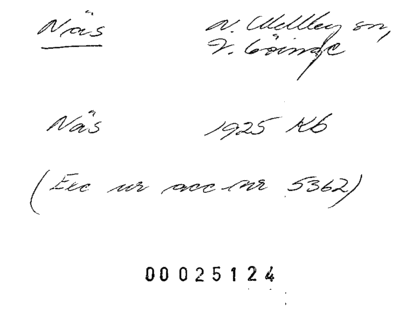 Näs N. Mellby sn,
V. Göinge
Näs 1925 Kb
(Exc ur acc nr 5362)
00025124